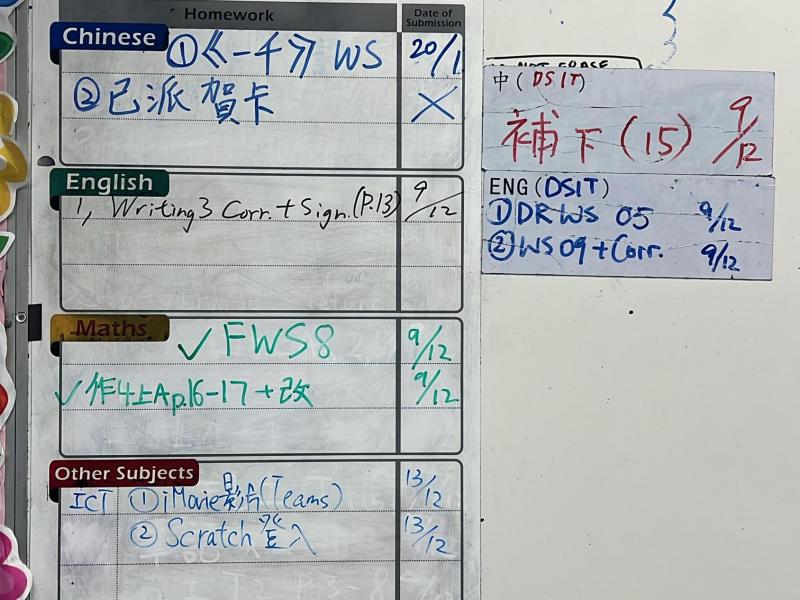 Homework
Date of Submission
Chinese
①《一千》WS 20/1
②已派賀卡 ×
English
1, Writing3 Corr. + Sign. (P.13) 9/12
Maths
✓ FWS8 9/12
✓作4上A p.16-17 + 改 9/12
Other Subjects
ICT ① iMovie影片(Teams) 13/12
② Scratch登入 13/12
NOT ERASE
中(DSIT)
補下(15) 9/12
ENG(DSIT)
① DR WS 05 9/12
② WS 09 + Corr. 9/12